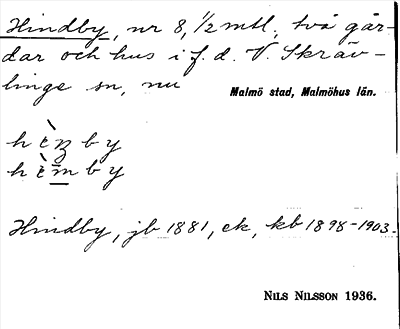 Hindby, nr 8, 1/2 mtl, två går-
dar och hus i f. d. V. Skräv-
linge sn, nu Malmö stad, Malmöhus län.
by
by
Hindby, jb 1881, ek, kb 1898-1903.
NILS NILSSON 1936.